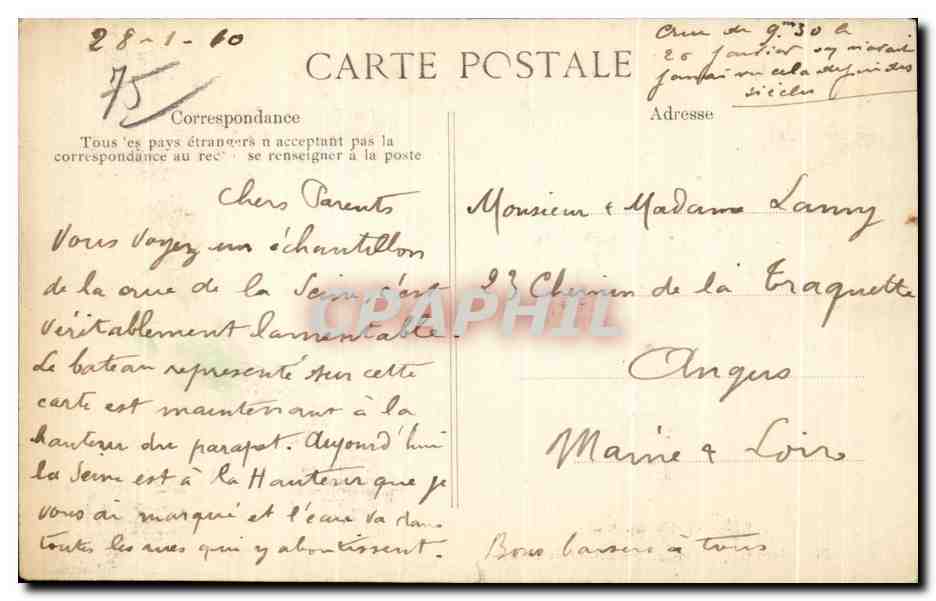 28-1-10
75
CARTE POSTALE
Crue de 9m30 le
26 janvier on n'avait
jamais vu cela depuis des
siècles
Correspondance
Tous les pays étrangers n acceptant pas la
correspondance au rec se renseigner à la poste
Adresse
Chers Parents
Vous voyez un échantillon
de la crue de la Seine c'est
véritablement lamentable.
Le bateau représenté sur cette
carte est maintenant à la
hauteur du parapet. Aujourd'hui
la Seine est à la Hauteur que je
vous ai marqué et l'eau va dans
toutes les rues qui y aboutissent.
Monsieur & Madame Lamy
23 Chemin de la Traquette
Angers
Maine & Loire
Bons baisers à tous
CPAPHIL